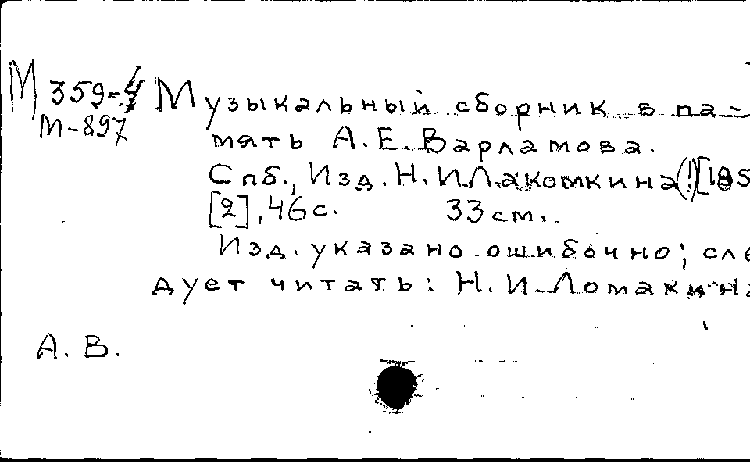 М 359-4 Музыкальный сборник в па-
М-897
мять А.Е. Варламова.
Спб., Изд. Н.И. Лакомкина (!) [185
[2], 46 с. 33 см.
Изд. указано ошибочно; сле
дует читать: Н.И. Ломакина
А. В.